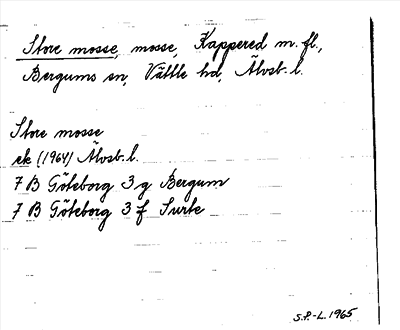 Store mosse, mosse, Kappered m. fl.,
Bergums sn, Vättle hd, Älvsb. l.
Store mosse
ek (1964) Älvsb. l.
7 B Göteborg 3 g Bergum
7 B Göteborg 3 f Surte
S.P.-L. 1965